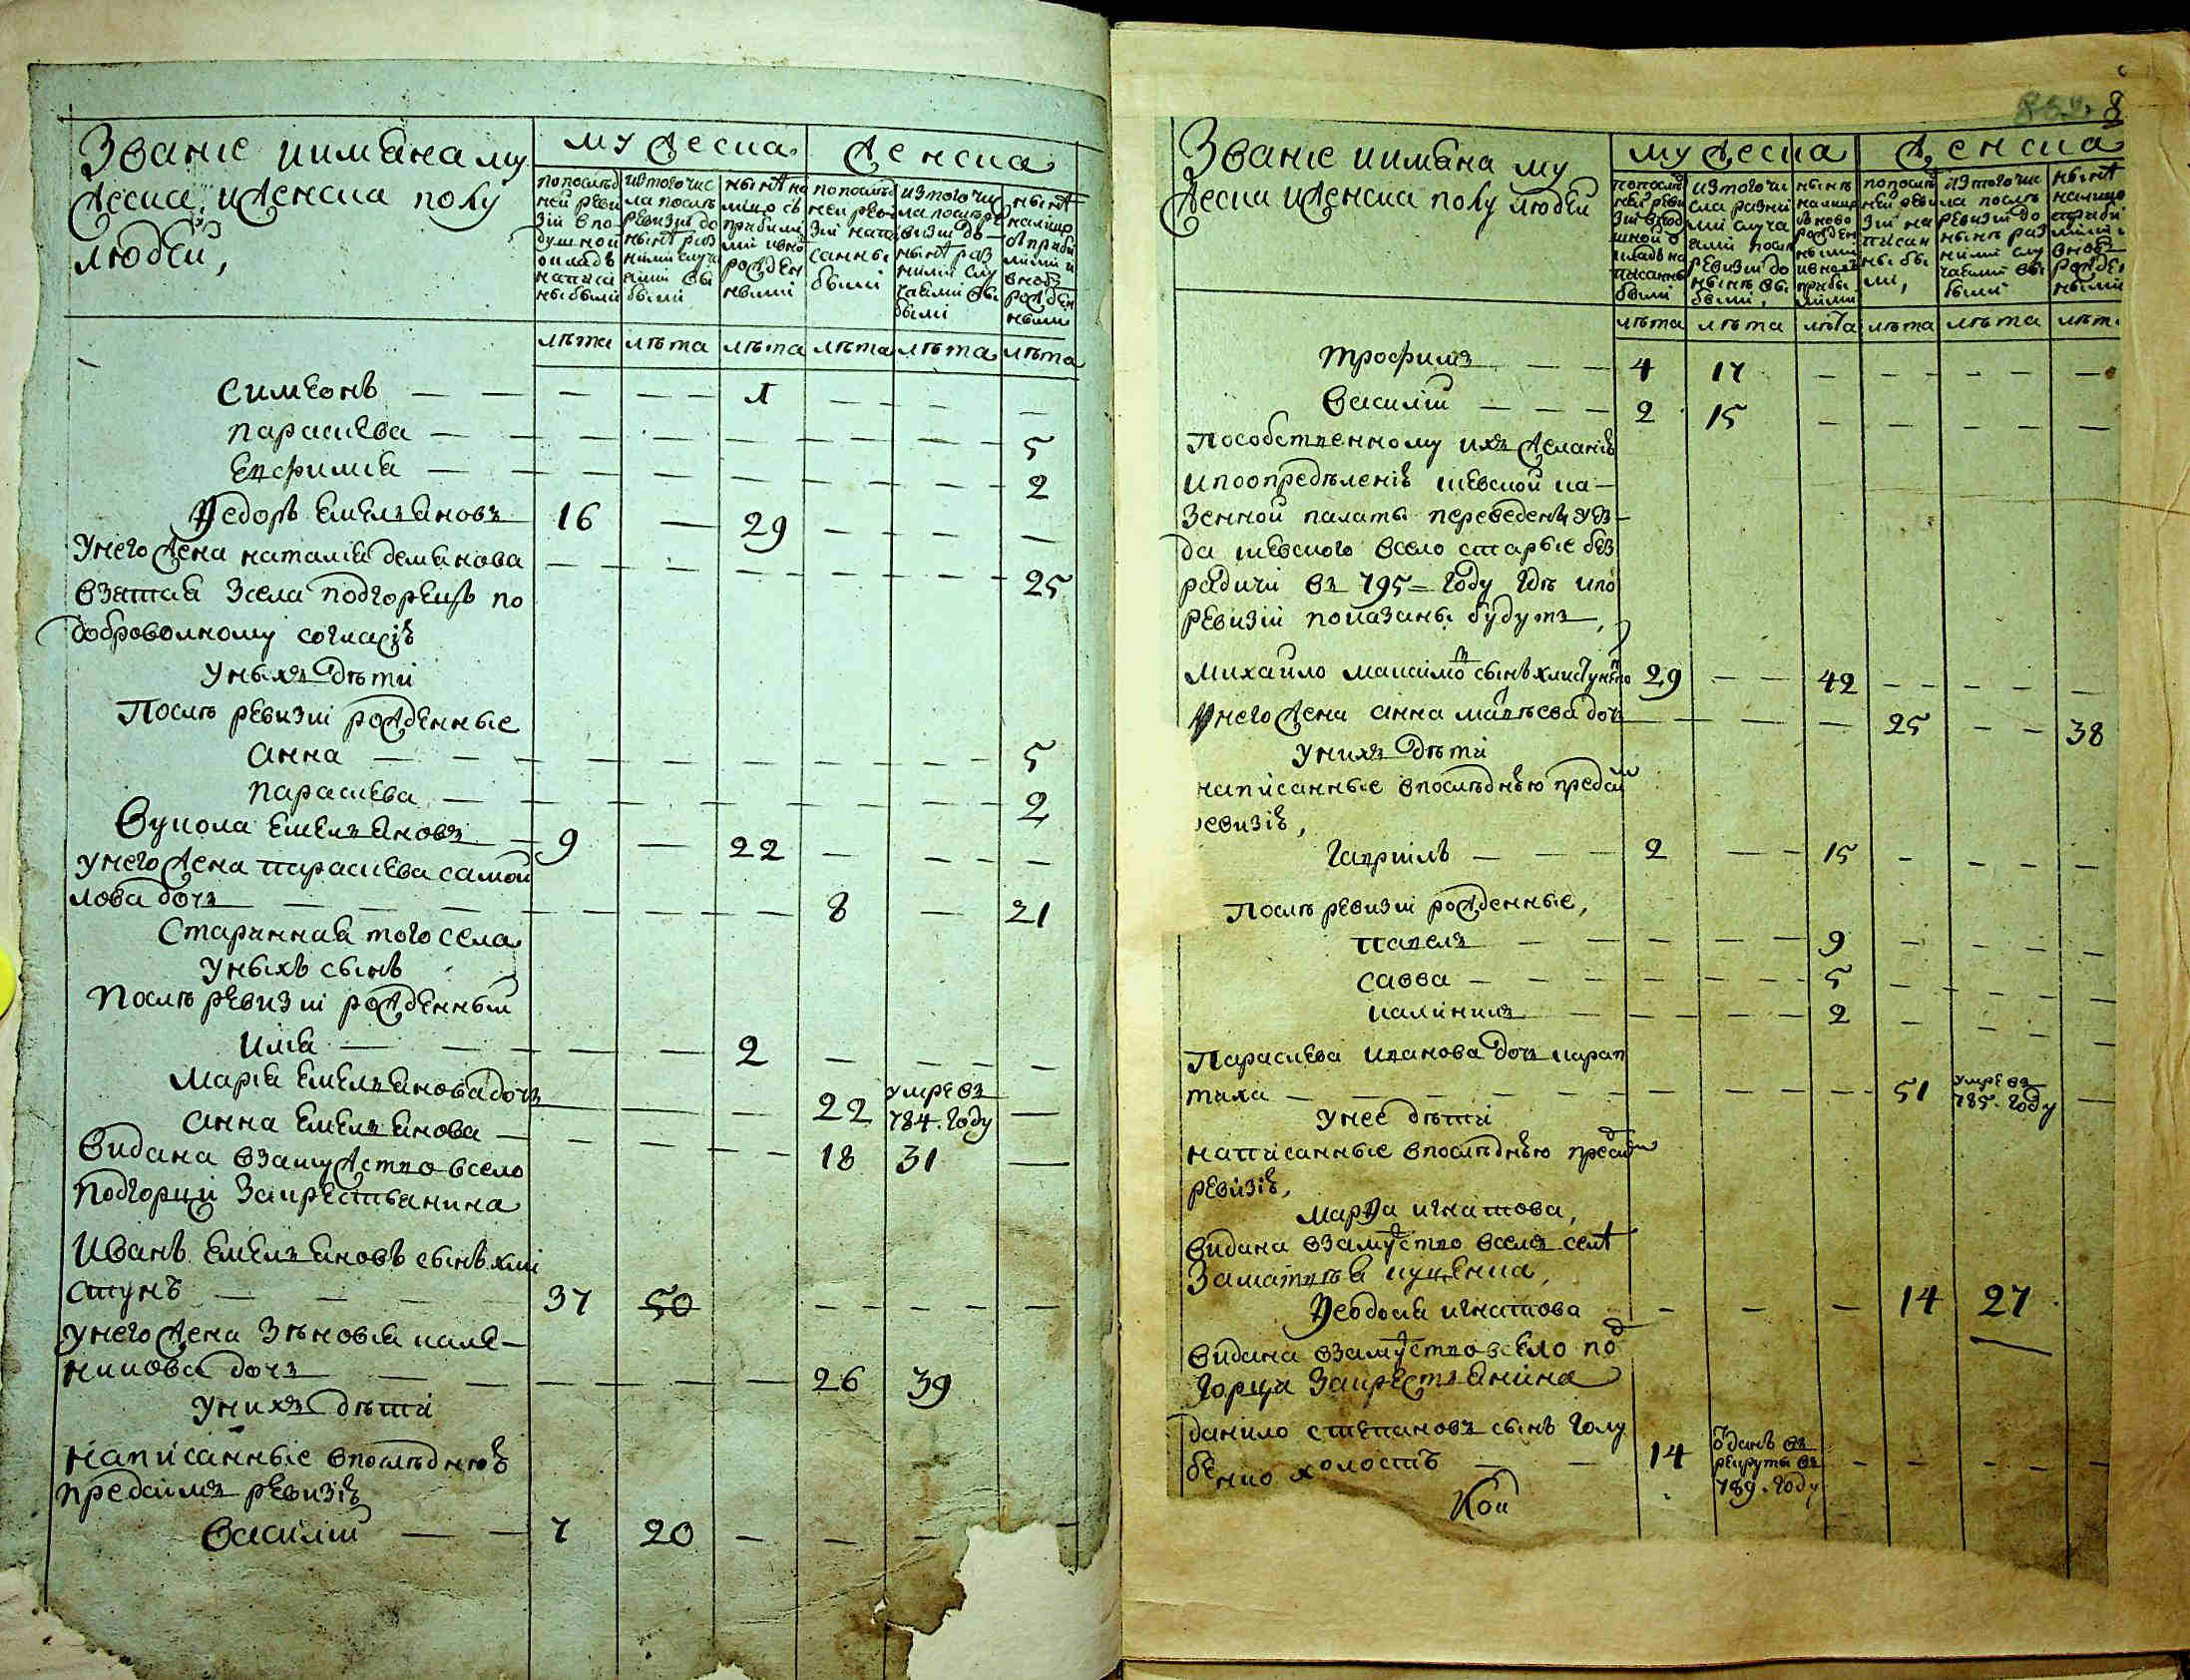 Званіе иимяна му
жеска, иженска полу
людей,
мужеска
женска
попослѣд
ней реви
зіи впо
душной
окладъ
написа
ны были
изтого чис
ла послѣ
ревизіи до
нынѣ раз
ними случа
ями вы
были
нынѣ на
лицо съ
прибылы
ми ивно
рожден
ными
попослѣд
ней реви
зіи напи
санны
были
изтого чи
ла послѣ ре
визіи до
нынѣ раз
ними слу
чаями вы
были
нынѣ
налицо
сприбы
лыми и
вновь
рожден
ными
лѣта лѣта лѣта лѣта лѣта лѣта
Симеонъ — — — — — 1 — — — —
параскева — — — — — — — — 5
Евфимія — — — — — — — — 2
Ѳедоръ Емельяновъ 16 — 29 — — — —
Унего жена наталія демянова — — — — — — — 25
взятая зсела подгорецъ по
доброволному согласію
Уныхъ дѣти
Послѣ ревизіи рожденные
анна — — — — — — — — 5
параскева — — — — — — — 2
Вукола Емельяновъ — 9 — 22 — — — —
унего жена параскева самой
лова дочь — — — — — — — 8 — 21
Старинная того села
уныхъ сынъ
Послѣ ревизіи рожденный
илія — — — — — 2 — — — —
Марія Емельянова дочь — — — 22 умре въ 784. году —
анна Емельянова — — — — — 18 31 —
Видана взамужство всело
Подгорци закрестьянина
Иванъ Емельяновъ сынъ хли
стунъ — — — — 37 50 — — — — —
унего жена зѣновія кале—
никова дочь — — — — — — 26 39
унихъ дѣти
написанные впослѣднюю
предсимъ ревизію
Василій — — 7 20 — — —
8
Званіе иимяна му
жеска иженска полу людей
мужеска
женска
попослѣд
ней реви
зіи впод
ушной о
кладъ на
писанны
были
изтого чи
сла разны
ми случа
ями посл
ревизіи до
нынѣ вы
были,
нынѣ
налицо
съ ново
рожден
ными
ивновь
прибы
лыми
попослѣд
ней реви
зіи на
писан
ны бы
ли,
изтого чи
ла послѣ
ревизіи до
нынѣ раз
ними слу
чаями вы
были
нынѣ
налицо
сприбы
лыми и
вновь
рожден
ными
лѣта лѣта лѣта лѣта лѣта лѣт
трофимъ — — 4 17 — — — — —
Василій — — — 2 15 — — — — —
Пособственному ихъ желанію
ипоопредѣленію кіевской ка—
зенной палаты переведены уез—
да кіевского всело старые без
радичи въ 795= году гдѣ ипо
ревизіи показаны будутъ,
Михайло максимовъ сынъ хлистунъ 29 — — 42 — — — — —
Унего жена анна матвѣева доч — — — 25 — — 38
унихъ дѣти
написанные впослѣднюю предси
ревизію,
гавриилъ — — — 2 — — 15 — — — —
Послѣ ревизіи рожденные,
павелъ — — — — — 9 — — — —
савва — — — — — — 5 — — — —
калиникъ — — — — — 2 — — — —
Параскева иванова дочь карап
тиха — — — — — — — — 51 умре въ 785. году —
унее дѣти
написанные впослѣднюю предси
ревизію,
Марѳа игнатова,
видана взамужство вселѣ семъ
заматвѣя куценка,
Ѳеодосія игнатова — — — 14 27
видана взамужство всело под
горци закрестьянина
данило степановъ сынъ голу
бенко холостъ — — 14 отданъ въ рекруты въ 789. году — — — — —
Кой